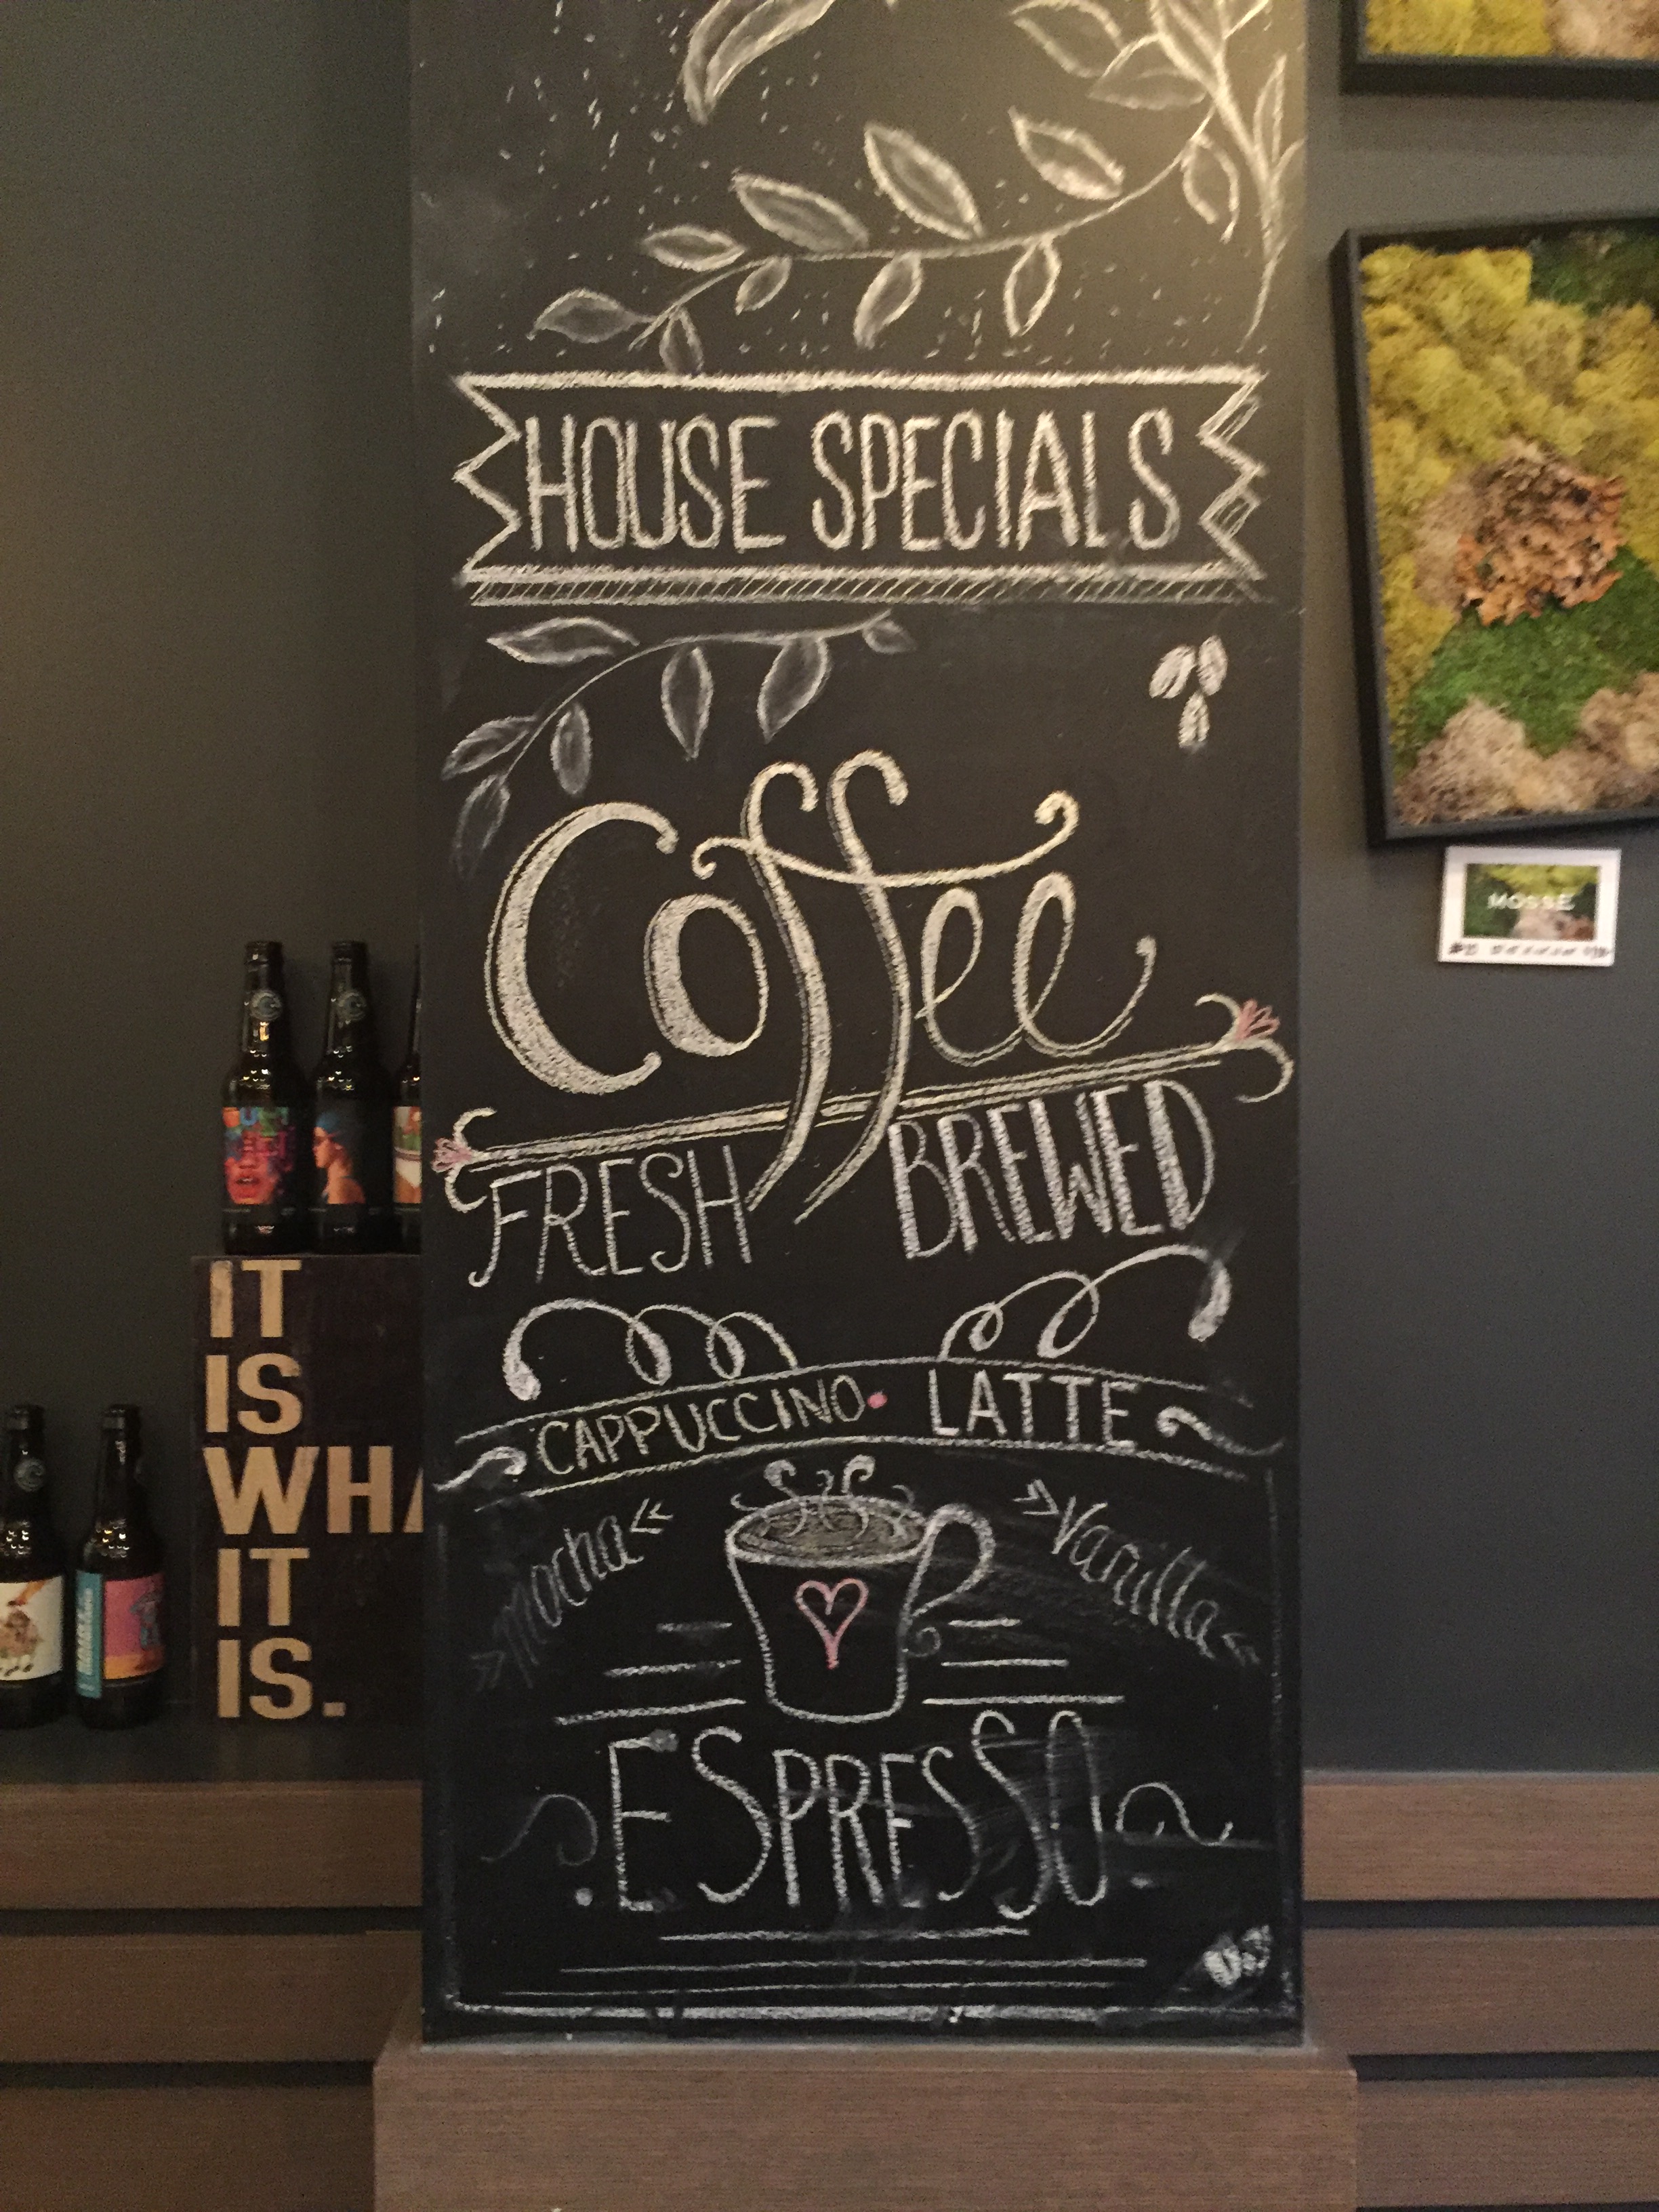 HOUSE SPECIALS
Coffee
FRESH BREWED
CAPPUCCINO • LATTE
»mocha«
»Vanilla«
ESPRESSO
IT
IS
WHA
IT
IS.
MOSSE